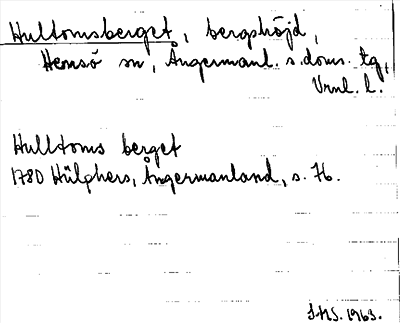 Hultomsberget, bergshöjd,
Hemsö sn, Ångermanl. s. doms. tg,
Vrnl. l.
Hulltoms berget
1780 Hülphers, Ångermanland, s. 76.
S.HS. 1963.